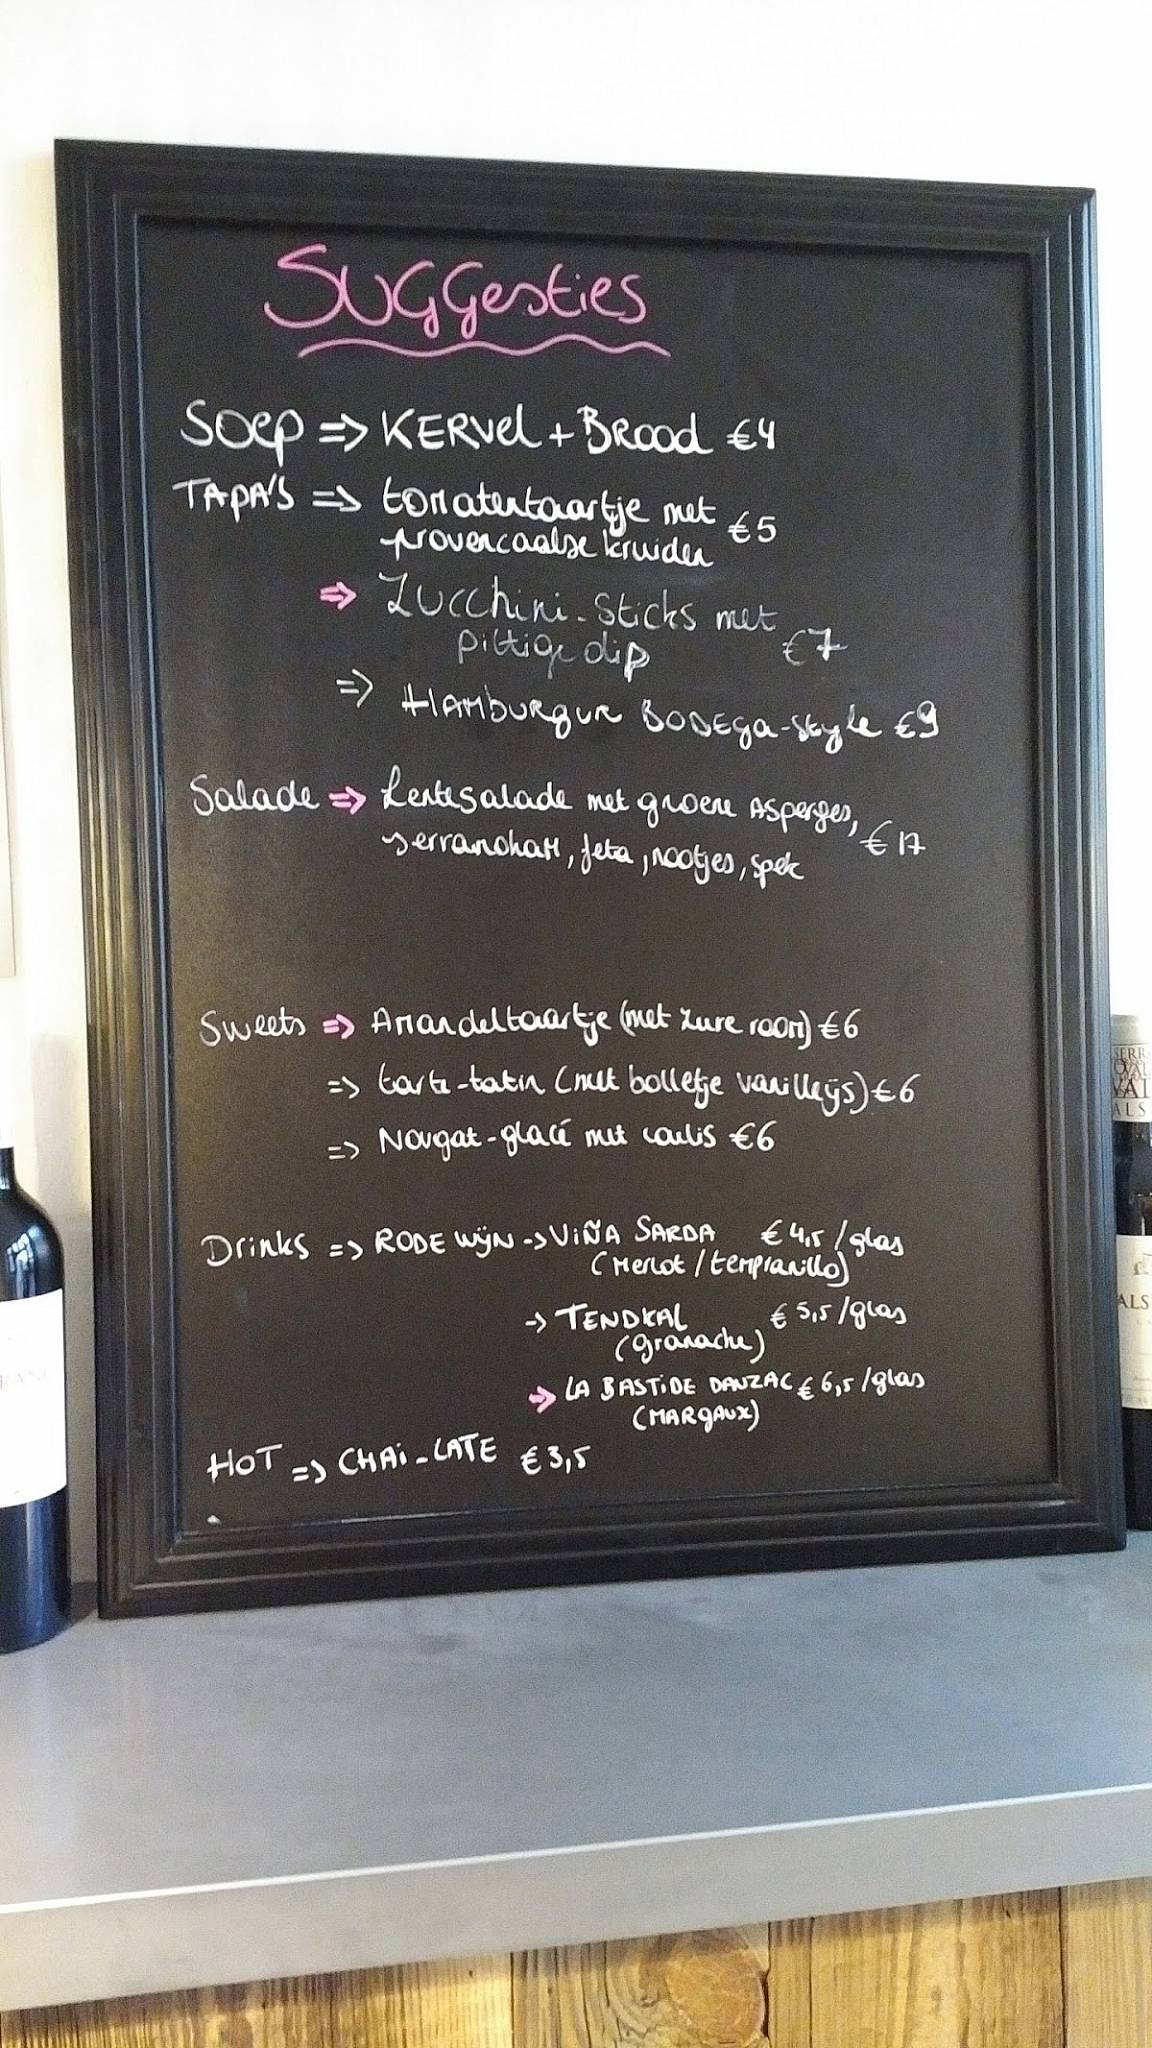 Suggesties
Soep => Kervel + Brood €4
Tapa's => tomatentaartje met €5
provencaalse kruiden
=> Zucchini-sticks met
pittige dip €7
=> Hamburgur Bodega-style €9
Salade => Lentesalade met groene Asperges,
serranoham, feta, nootjes, spek €17
Sweets => Amandeltaartje (met zure room) €6
=> tarte-tatin (met bolletje vanilleijs) €6
=> Nougat-glacé met coulis €6
Drinks => RODE Wijn -> ViÑA SARDA €4,5/glas
(Merlot/tempranillo)
-> TENDRAL €5,5/glas
(granache)
=> LA BASTiDE DAUZAC €6,5/glas
(MARgAUX)
HOT => CHAi-LATE €3,5
SERR
VAL
ALS
ALS